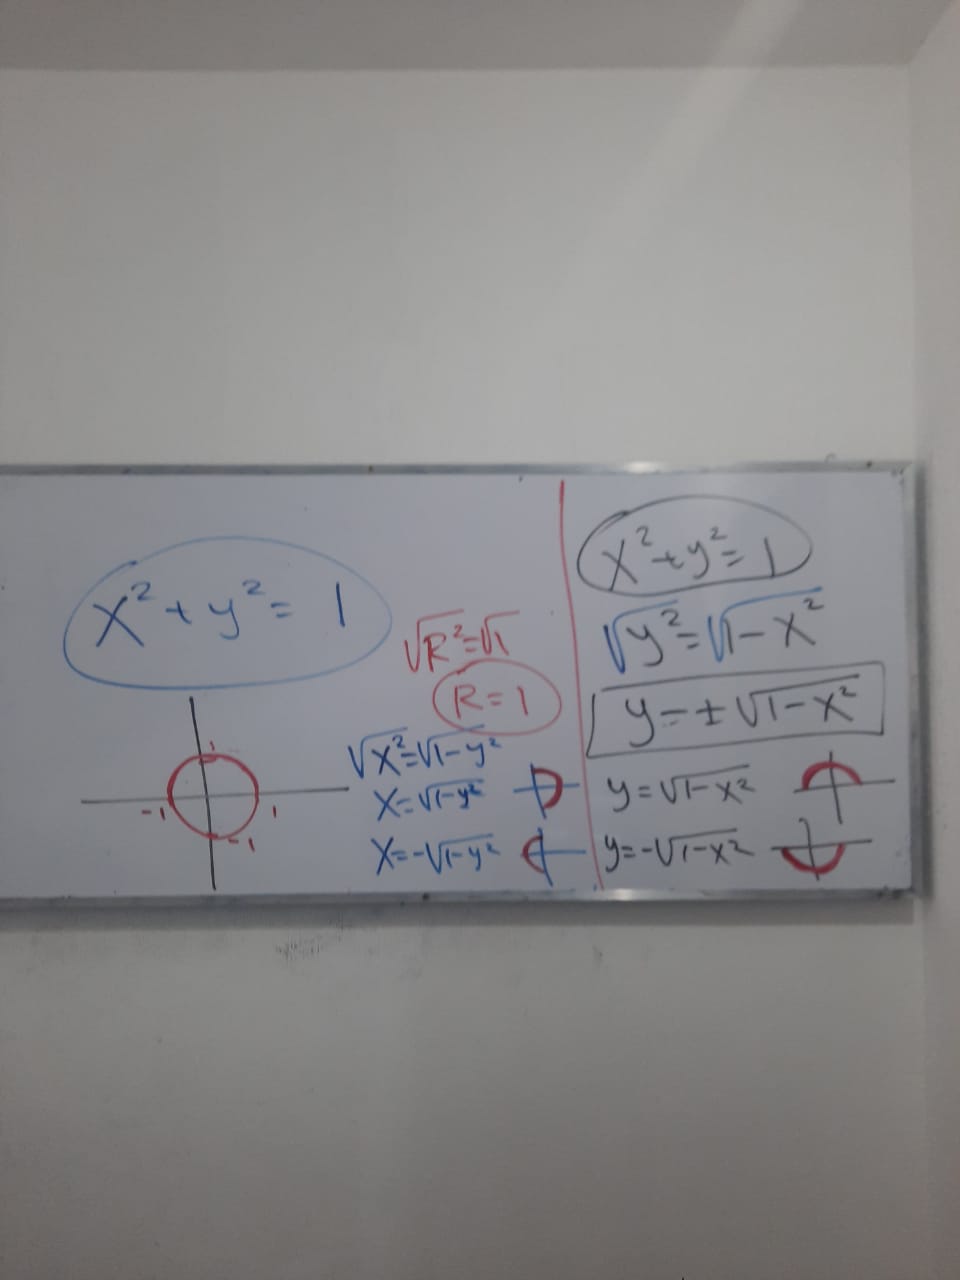 x² + y² = 1
√R² = √1
R = 1
1
-1
1
-1
√x² = √1-y²
x = √1-y²
x = -√1-y²
x² + y² = 1
√y² = √1-x²
y = ± √1-x²
y = √1-x²
y = -√1-x²